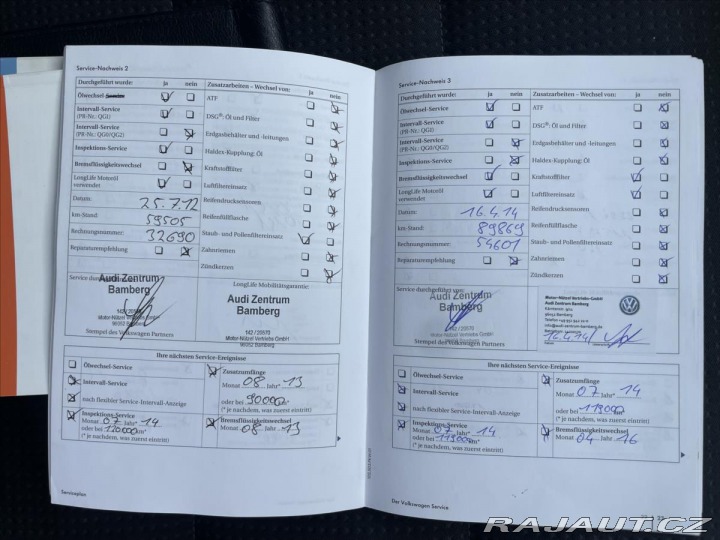 Service-Nachweis 2
Durchgeführt wurde: ja nein
Ölwechsel-Service
Intervall-Service
(PR-Nr.: QG1)
Intervall-Service
(PR-Nr.: QG0/QG2)
Inspektions-Service
Bremsflüssigkeitswechsel
LongLife Motoröl
verwendet
Datum: 25.7.12
km-Stand: 59505
Rechnungsnummer: 32690
Reparaturempfehlung
Zusatzarbeiten – Wechsel von: ja nein
ATF
DSG®: Öl und Filter
Erdgasbehälter und -leitungen
Haldex-Kupplung: Öl
Kraftstofffilter
Luftfiltereinsatz
Reifendrucksensoren
Reifenfüllflasche
Staub- und Pollenfiltereinsatz
Zahnriemen
Zündkerzen
Service durchgeführt
Audi Zentrum
Bamberg
142 / 25570
Motor-Nützel Vertriebs GmbH
96052 Bamberg
Stempel des Volkswagen Partners
LongLife Mobilitätsgarantie
Audi Zentrum
Bamberg
142 / 25570
Motor-Nützel Vertriebs GmbH
96052 Bamberg
Ihre nächsten Service-Ereignisse
Ölwechsel-Service
Intervall-Service
nach flexibler Service-Intervall-Anzeige
Inspektions-Service
Monat 07 Jahr* 14
oder bei 120000 km*
(* je nachdem, was zuerst eintritt)
Zusatzumfänge
Monat 08 Jahr* 13
oder bei 90000
(* je nachdem, was zuerst eintritt)
Bremsflüssigkeitswechsel
Monat 08 Jahr 13
Serviceplan
Service-Nachweis 3
Durchgeführt wurde: ja nein
Ölwechsel-Service
Intervall-Service
(PR-Nr.: QG1)
Intervall-Service
(PR-Nr.: QG0/QG2)
Inspektions-Service
Bremsflüssigkeitswechsel
LongLife Motoröl
verwendet
Datum: 16.4.14
km-Stand: 89869
Rechnungsnummer: 54601
Reparaturempfehlung
Zusatzarbeiten – Wechsel von: ja nein
ATF
DSG®: Öl und Filter
Erdgasbehälter und -leitungen
Haldex-Kupplung: Öl
Kraftstofffilter
Luftfiltereinsatz
Reifendrucksensoren
Reifenfüllflasche
Staub- und Pollenfiltereinsatz
Zahnriemen
Zündkerzen
Service durchgeführt von:
Audi Zentrum
Bamberg
142 / 25570
Motor-Nützel Vertriebs GmbH
96052 Bamberg
Stempel des Volkswagen Partners
Motor-Nützel Vertriebs-GmbH
Audi Zentrum Bamberg
16.4.14
Ihre nächsten Service-Ereignisse
Ölwechsel-Service
Intervall-Service
nach flexibler Service-Intervall-Anzeige
Inspektions-Service
Monat 07 Jahr* 14
oder bei 119000 km*
(* je nachdem, was zuerst eintritt)
Zusatzumfänge
Monat 07 Jahr* 14
oder bei 119000
(* je nachdem, was zuerst eintritt)
Bremsflüssigkeitswechsel
Monat 04 Jahr 16
Der Volkswagen Service
RAJAUT.CZ